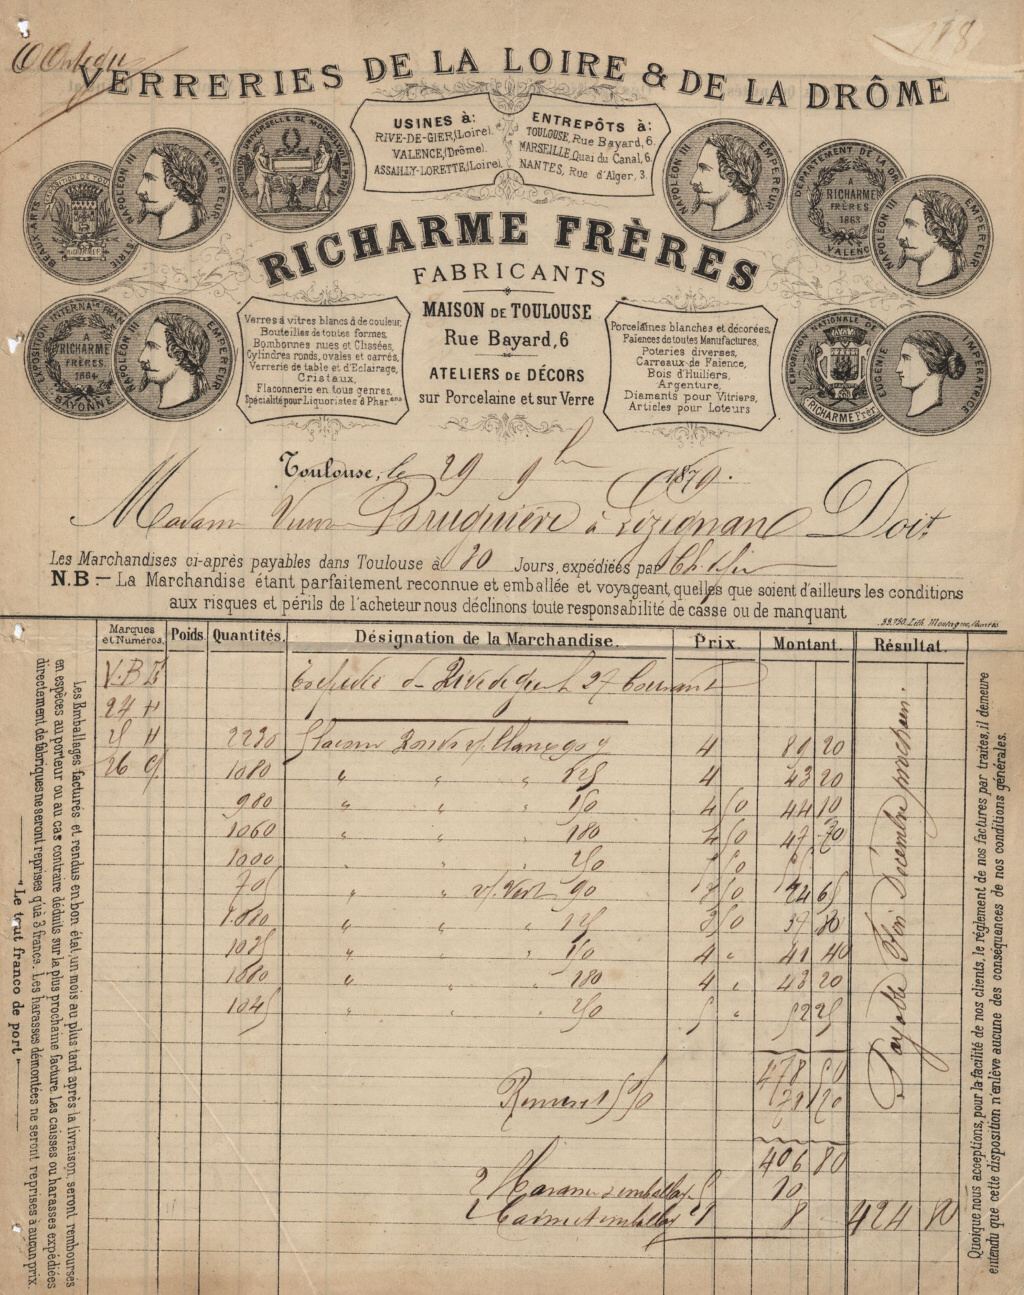 VERRERIES DE LA LOIRE & DE LA DRÔME
USINES à:
RIVE-DE-GIER,(Loire).
VALENCE,(Drôme).
ASSAILLY-LORETTE,(Loire)
ENTREPÔTS à:
TOULOUSE, Rue Bayard, 6.
MARSEILLE, Quai du Canal, 6.
NANTES, Rue d'Alger, 3.
NAPOLÉON III EMPEREUR
NAPOLÉON III EMPEREUR
DÉPARTEMENT DE LA
A
RICHARME
FRÈRES
1863
VALENC
NAPOLÉON III EMPEREUR
RICHARME FRÈRES
FABRICANTS
EXPOSITION INTERNA
A
RICHARME
FRÈRES
1864
BAYONNE
NAPOLÉON III EMPEREUR
Verres à vitres blancs & de couleur,
Bouteilles de toutes formes,
Bombonnes nues et Clissées,
Cylindres ronds, ovales et carrés,
Verrerie de table et d'Eclairage,
Cristaux,
Flaconnerie en tous genres,
Spécialité pour Liquoristes & Phar.ens
MAISON DE TOULOUSE
Rue Bayard, 6
ATELIERS DE DÉCORS
sur Porcelaine et sur Verre
Porcelaines blanches et décorées,
Faïences de toutes Manufactures,
Poteries diverses,
Carreaux de Faïence,
Bois d'Huiliers,
Argenture,
Diamants pour Vitriers,
Articles pour Loteurs
EXPOSITION NATIONALE DE
RICHARME Frèr
EUGÉNIE IMPÉRATRICE
Toulouse, le 29 9bre 1879.
Madame Veuve Bruguière à Lézignan Doit
Les Marchandises ci-après payables dans Toulouse à 30 Jours, expédiées par
N.B.— La Marchandise étant parfaitement reconnue et emballée et voyageant, quelles que soient d'ailleurs les conditions
aux risques et périls de l'acheteur nous déclinons toute responsabilité de casse ou de manquant
Marques et Numéros. Poids. Quantités. Désignation de la Marchandise. Prix. Montant. Résultat.
V.B.
Rive de Gier le 27 Courant
2230 4 89 20
1080 " " " 125 4 43 20
980 " " " 150 4 50 44 10
1060 " " " 180 4 50 47 70
1000 250
705 " " v/. Vert 90 3 50 24 65
1080 " " " 125 3 50 37 80
1035 " " 150 4 " 41 40
1080 " " " 180 4 " 43 20
1045 " " " 250 5 " 52 25
478 50
Remise 15 %
406 80
2 Harasses & emballage 5 10
8 424 80
Payable Fin Décembre prochain.
Les Emballages facturés et rendus en bon état, un mois au plus tard après la livraison, seront remboursés
en espèces au porteur ou au cas contraire déduits sur la plus prochaine facture. Les caisses ou harasses expédiées
directement de fabriques ne seront reprises qu'à 3 francs. Les harasses démontées ne seront reprises à aucun prix.
"Le tout franco de port"
Quoique nous acceptions, pour la facilité de nos clients, le règlement de nos factures par traites, il demeure
entendu que cette disposition n'enlève aucune des conséquences de nos conditions générales.